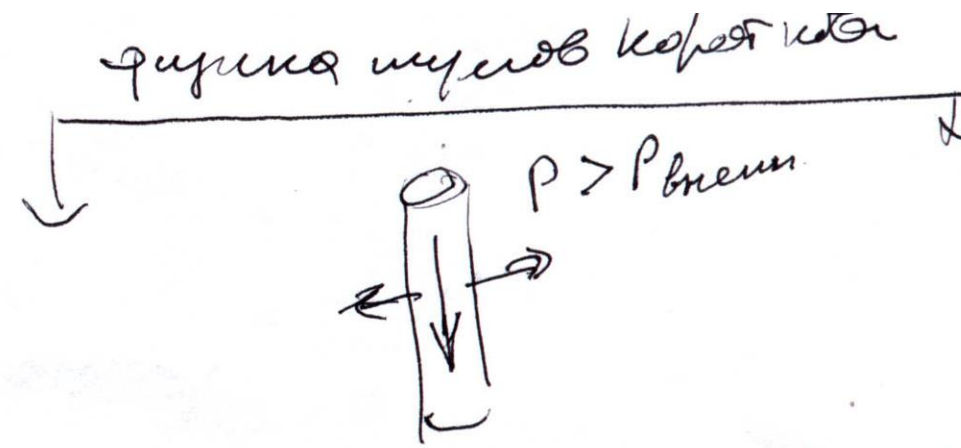 физика шумов Короткова
P > Pвнешн.